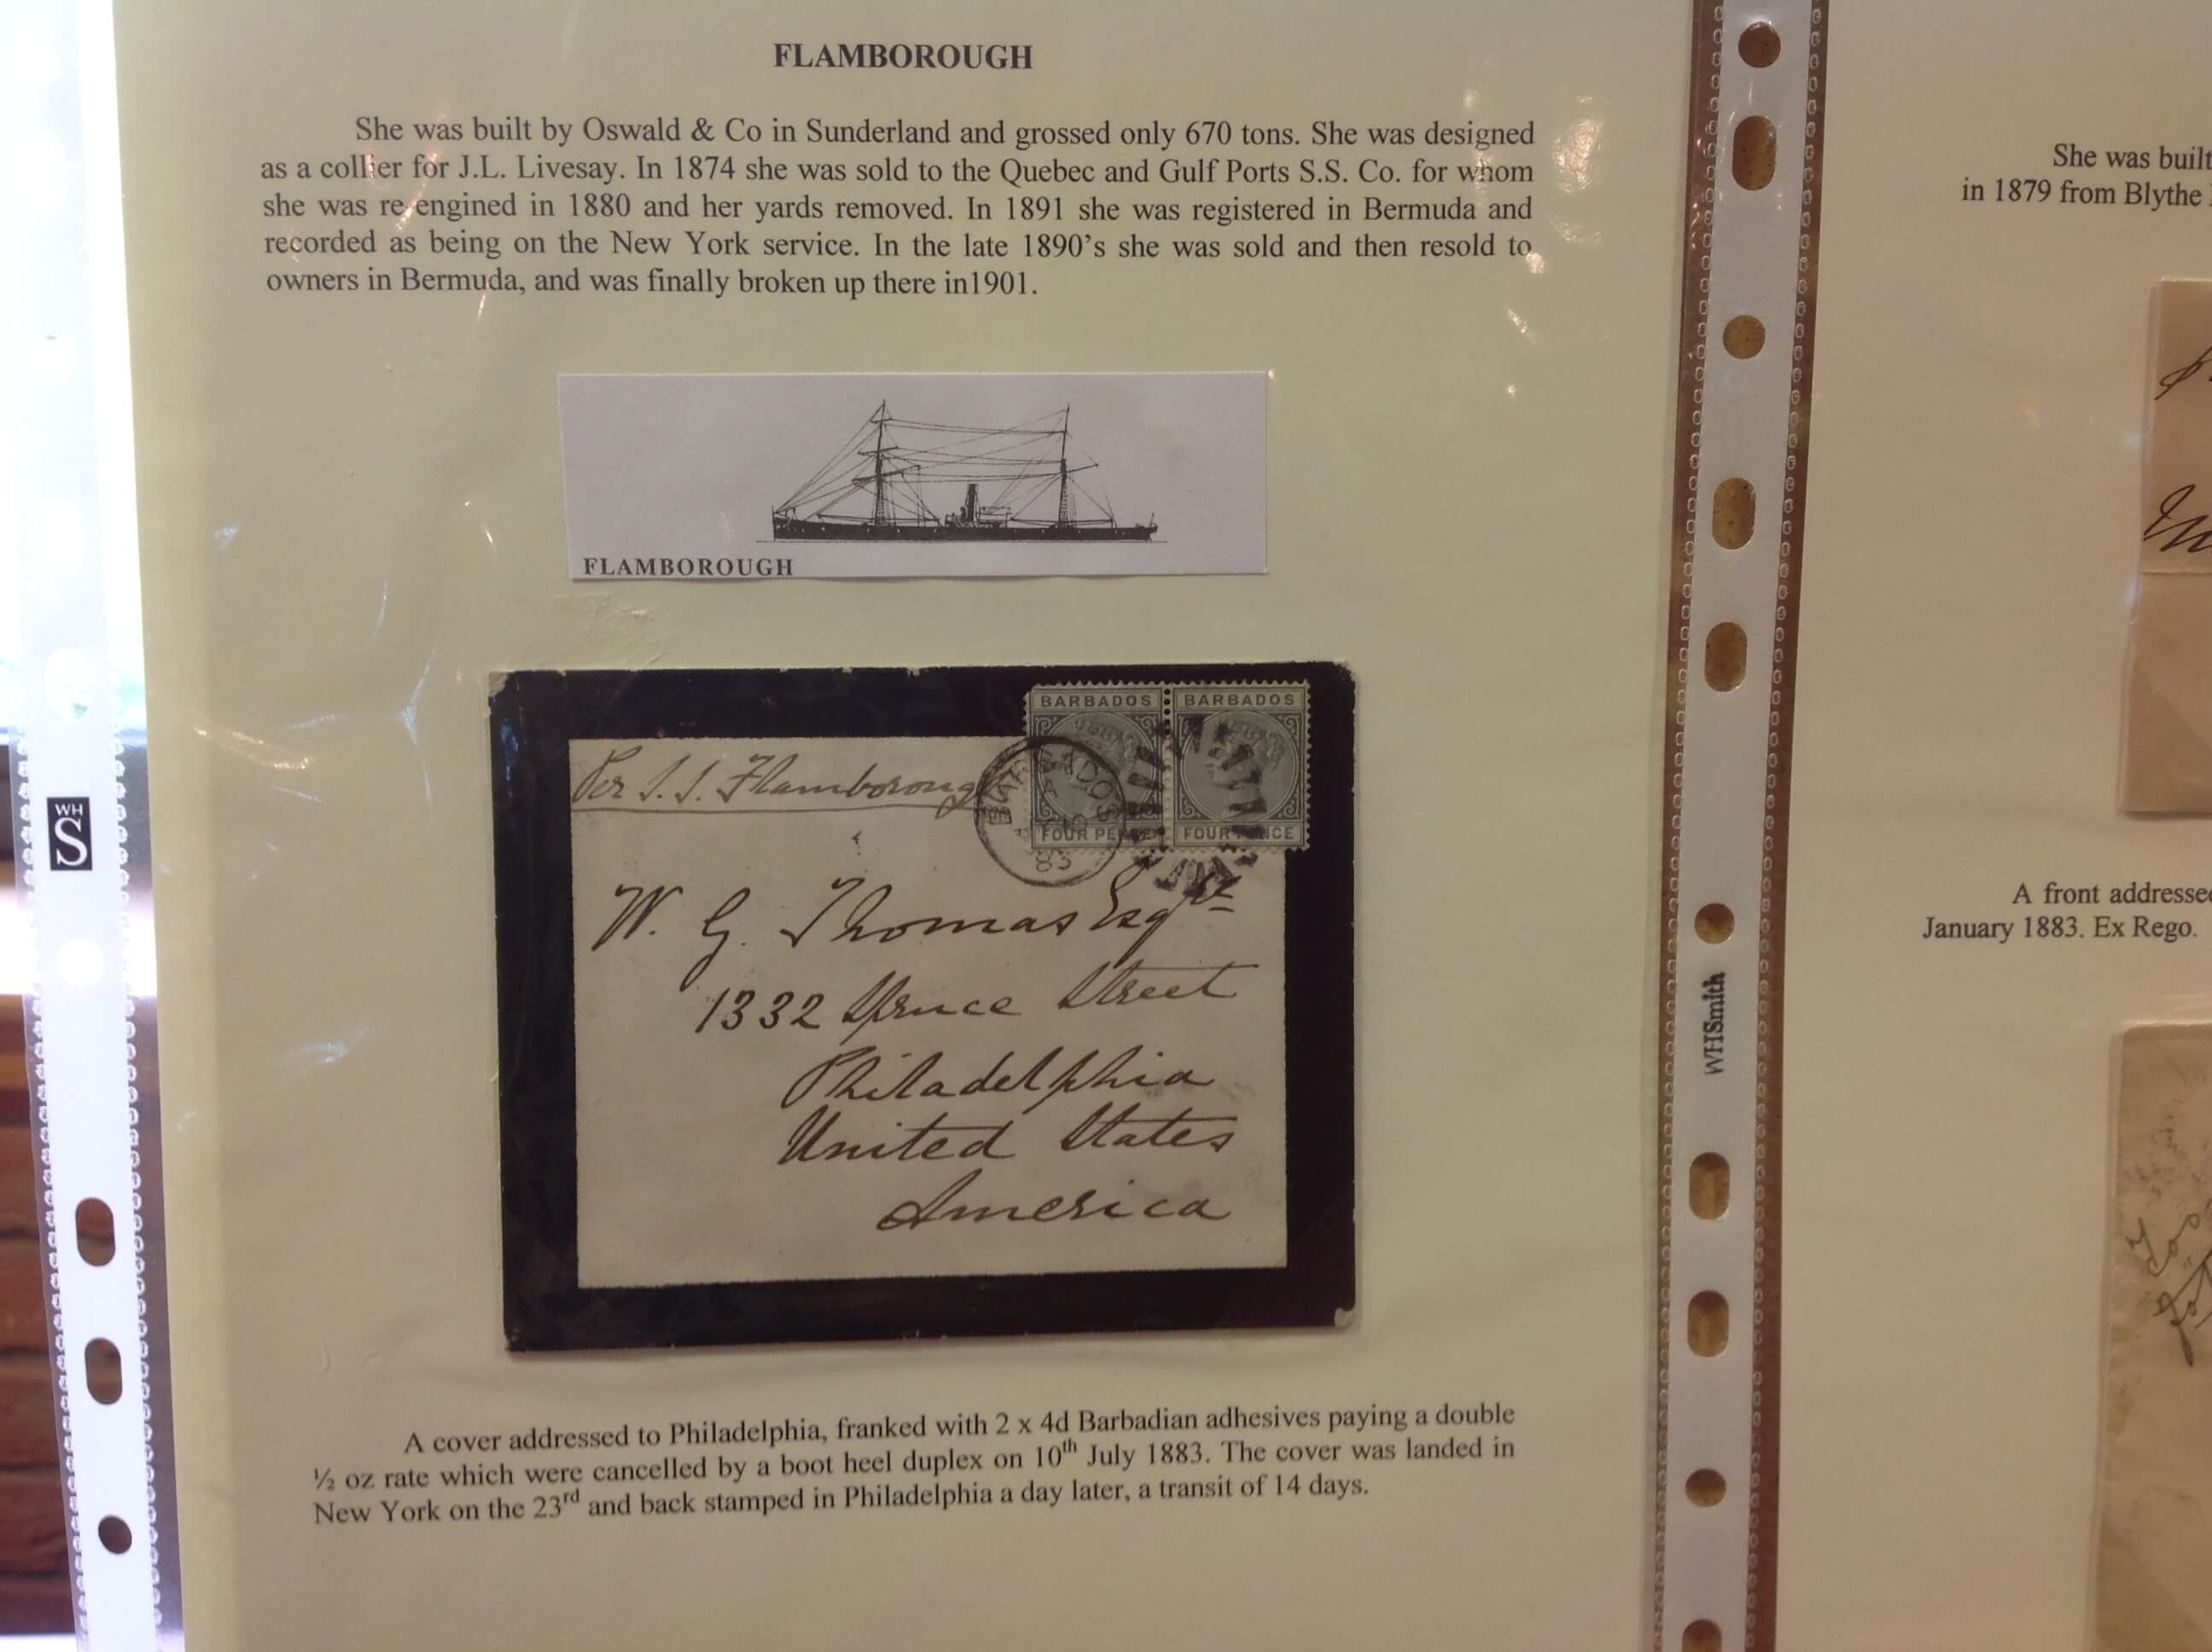 FLAMBOROUGH
She was built by Oswald & Co in Sunderland and grossed only 670 tons. She was designed
as a collier for J.L. Livesay. In 1874 she was sold to the Quebec and Gulf Ports S.S. Co. for whom
she was re-engined in 1880 and her yards removed. In 1891 she was registered in Bermuda and
recorded as being on the New York service. In the late 1890's she was sold and then resold to
owners in Bermuda, and was finally broken up there in1901.
FLAMBOROUGH
BARBADOS BARBADOS
FOUR PENCE FOUR PENCE
BARBADOS
83
Per S.S. Flamborough
W. G. Thomas Esqre
1332 Spruce Street
Philadelphia
United States
America
A cover addressed to Philadelphia, franked with 2 x 4d Barbadian adhesives paying a double
½ oz rate which were cancelled by a boot heel duplex on 10th July 1883. The cover was landed in
New York on the 23rd and back stamped in Philadelphia a day later, a transit of 14 days.
WH
S
WHSmith
She was built
in 1879 from Blythe
A front addressed
January 1883. Ex Rego.